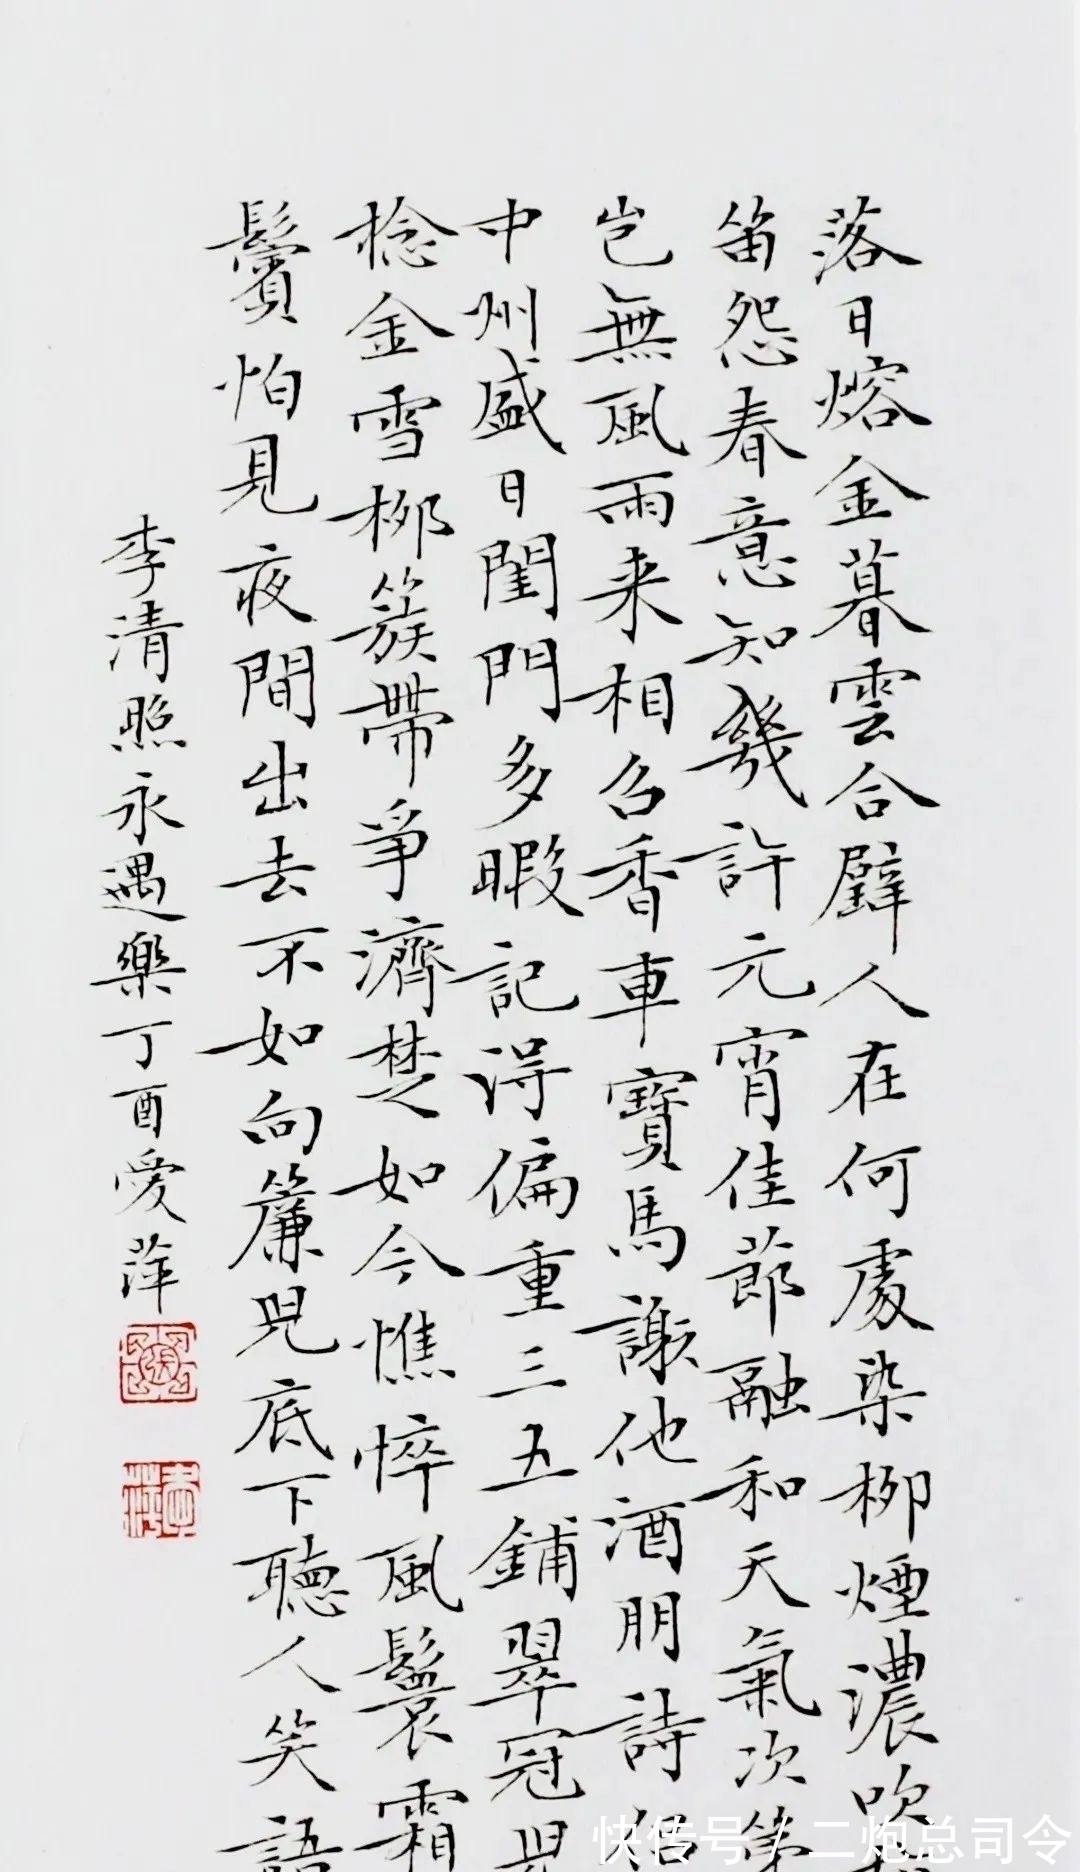 落日熔金暮雲合璧人在何處染柳煙濃吹
笛怨春意知幾許元宵佳節融和天氣次第
豈無風雨来相召香車寶馬謝他酒朋詩侣
中州盛日閨門多暇記得偏重三五鋪翠冠兒
捻金雪柳簇帶爭濟楚如今憔悴風鬟霜
鬢怕見夜間出去不如向簾兒底下聽人笑語
李清照永遇樂丁酉愛萍
快传号/二炮总司令